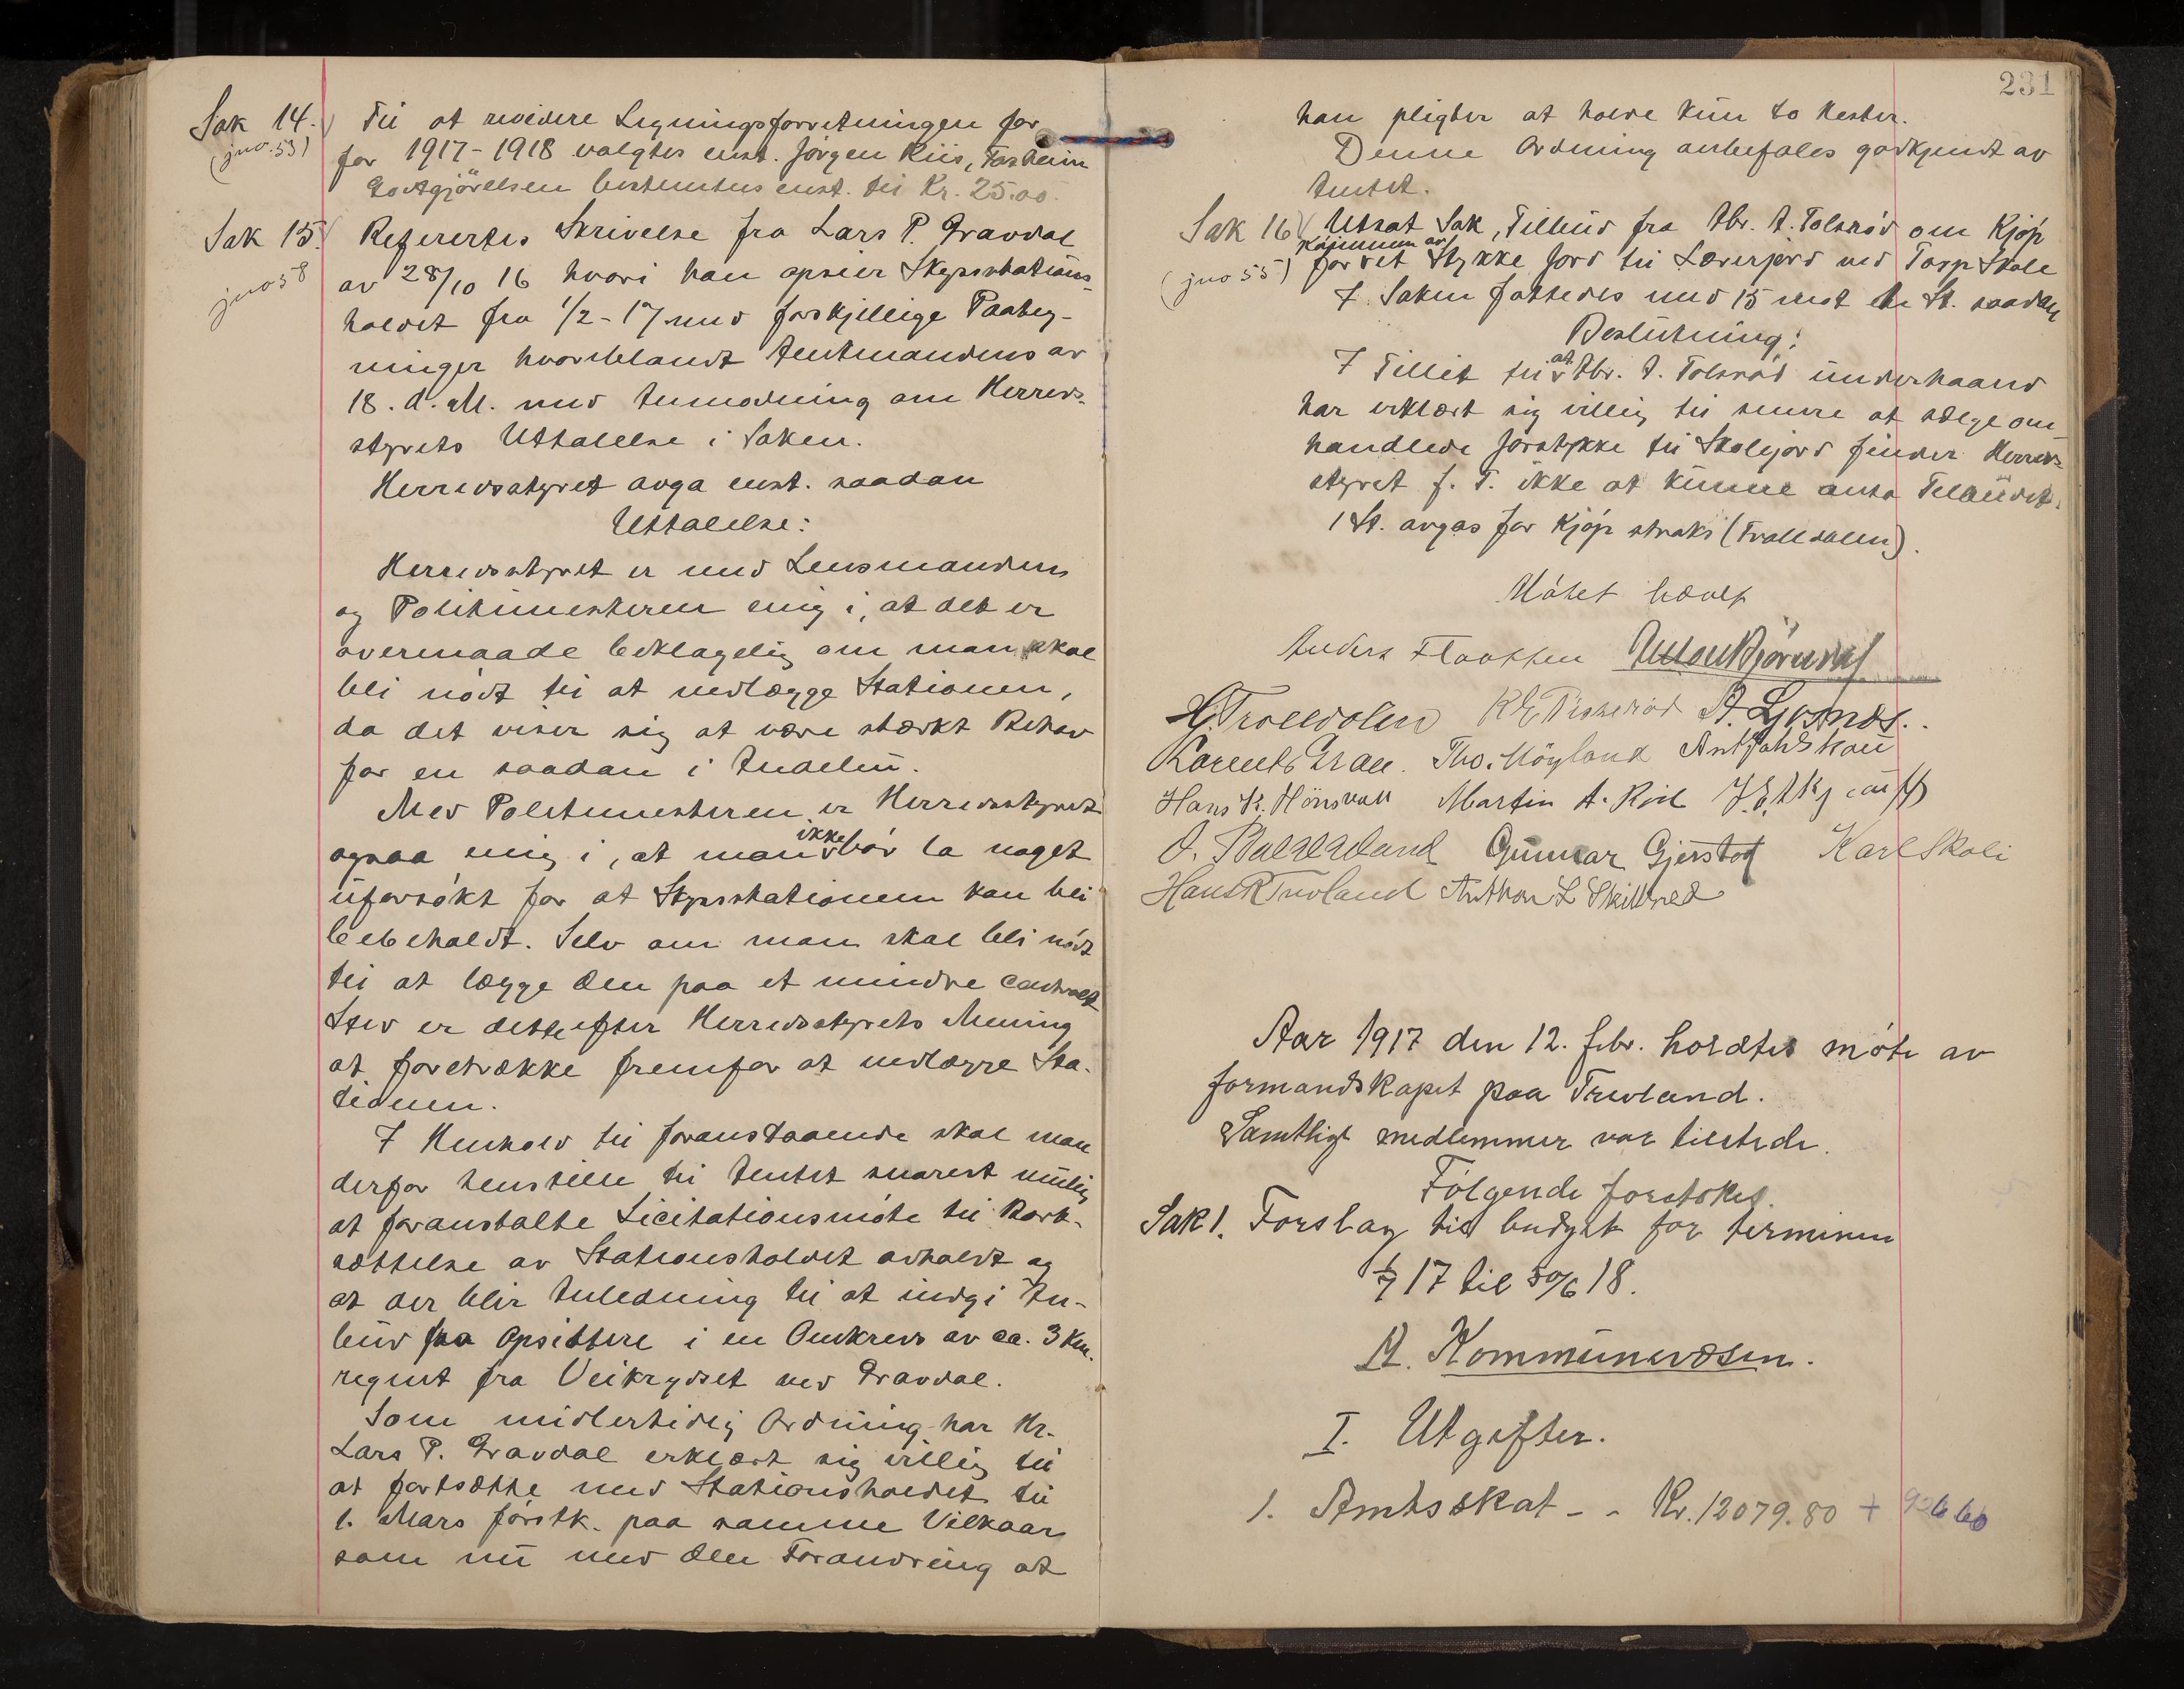 Sak 14.) Til at revidere Ligningsforretningen for
(jno. 53) for 1917-1918 valgtes enst. Jørgen Riis, Fosheim
Godtgjörelsen bestemtes enst. til Kr. 25.00.
Sak 15.) Referertes Skrivelse fra Lars P. Gravdal
jno 58 av 28/10 16 hvori han opsier Skysstations-
holdet fra 1/2-17 med forskjellige Paateg-
ninger hvoriblandt Amtmandens av
18. d. M. med Anmodning om Herreds-
styrets Uttalelse i Saken.
Herredsstyret avga enst. saadan
Uttalelse:
Herredsstyret er med Lensmanden
og Politimesteren enig i, at det er
overmaade beklagelig om man skal
bli nödt til at nedlægge Stationen,
da det viser sig at være stærkt Behov
for en saadan i Andebu.
Med Politimesteren er Herredsstyret
ogsaa enig i, at man ikke bör la noget
uforsökt for at Skysstationen kan bli
bebeholdt. Selv om man skal bli nödt
til at lægge den paa et mindre centralt
Sted er dette efter Herredsstyrets Mening
at foretrække fremfor at nedlægge Sta-
tionen.
I Henhold til foranstaaende skal man
derfor henstille til Amtet snarest mulig
at foranstalte Licitationsmöte til Bort-
sættelse av Stationsholdet avholdt og
at der blir Anledning til at indgi An-
bud fra Opsittere i en Omkreds av ca. 3 Km.
regnet fra Veikrydset ved Gravdal.
Som midlertidig Ordning har Hr.
Lars P. Gravdal erklært sig villig til
at fortsætte med Stationsholdet til
1. Mars förstk. paa samme Vilkaar
som nu med den Forandring at
231
han pligter at holde kun to Hester.
Denne Ordning anbefales godkjendt av
Amtet.
Sak 16) Utsat Sak, Tilbud fra Abr. A. Tolsröd om Kjöp
(jno 55) kommunen av for et Stykke Jord til Lærerjord ved Torp Skole
I Saken fattedes med 15 mot en St. saadan
Beslutning:
I Tillit til at Abr. A. Tolsröd underhaand
har erklært sig villig til senere at sælge om-
handlede Jordstykke til Skolejord finder Herreds-
styret f. T. ikke at kunne anta Tilbudet.
1 St. avgas for Kjöp straks (Trolldalen).
Mötet hævet
Anders Flaatten Anton Bjørndal
G. Trolldalen R E Piskeröd A. Ljosnes.
Laurits Gran. Tho. Möyland Ant Joh Skau
Hans K. Hönsvall Martin A. Riil
O. Bulleland Gunnar Gjerstad Karl Skoli
Hans R Trevland Anthon L Skilbred
Aar 1917 den 12. febr. holdtes möte av
formandskapet paa Trevland.
Samtlige medlemmer var tilstede.
Fölgende foretokes.
Sak 1. Forslag til budget for terminen
1/7 17 til 30/6 18.
A. Kommunevæsen.
I. Utgifter.
1. Amtsskat - - Kr. 12079.80 +